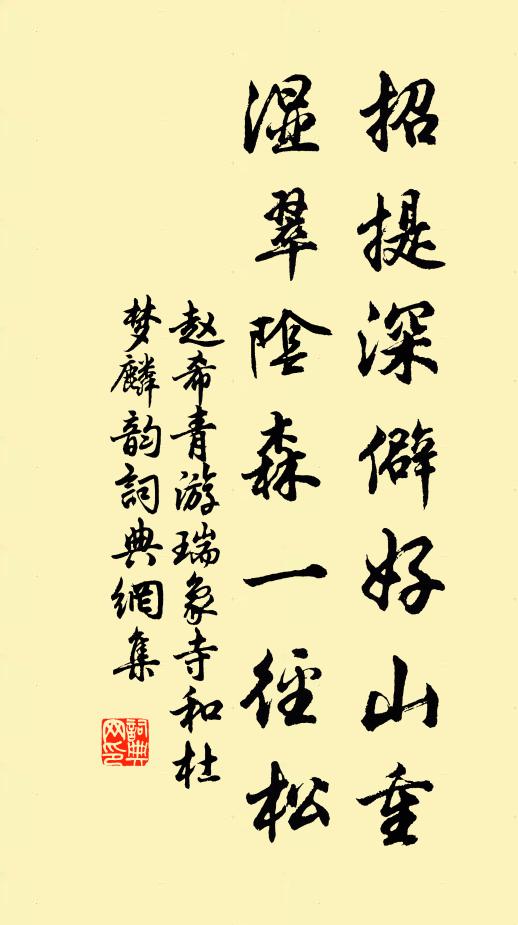 招提深僻好山重
湿翠陰森一径松
赵希青游瑞象寺和杜
梦麟韵詞典網集
詞典网印